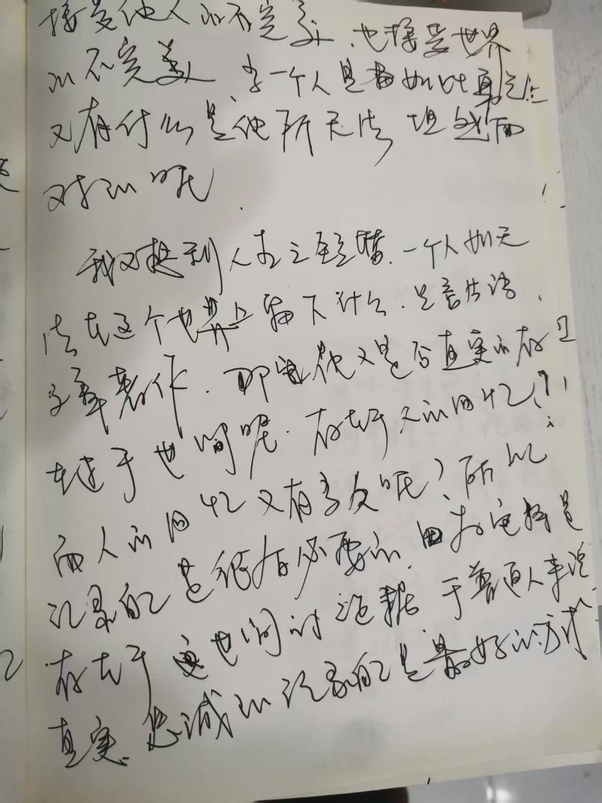 接受他人的不完美、也接受世界
的不完美、当一个人是有如此勇气
又有什么是他所无法坦然面
对的呢.
我又想到人生之 一个人如无
法在这个世界上留下什么.是言语、
文章著作.那他又是否真实的存
在于世间呢.存在于人的回忆?
而人的回忆又有多久呢?所以
记录自己是很有必要的.
存在于这世间 于普通人来说
真实、忠诚的记录自己是最好的方式